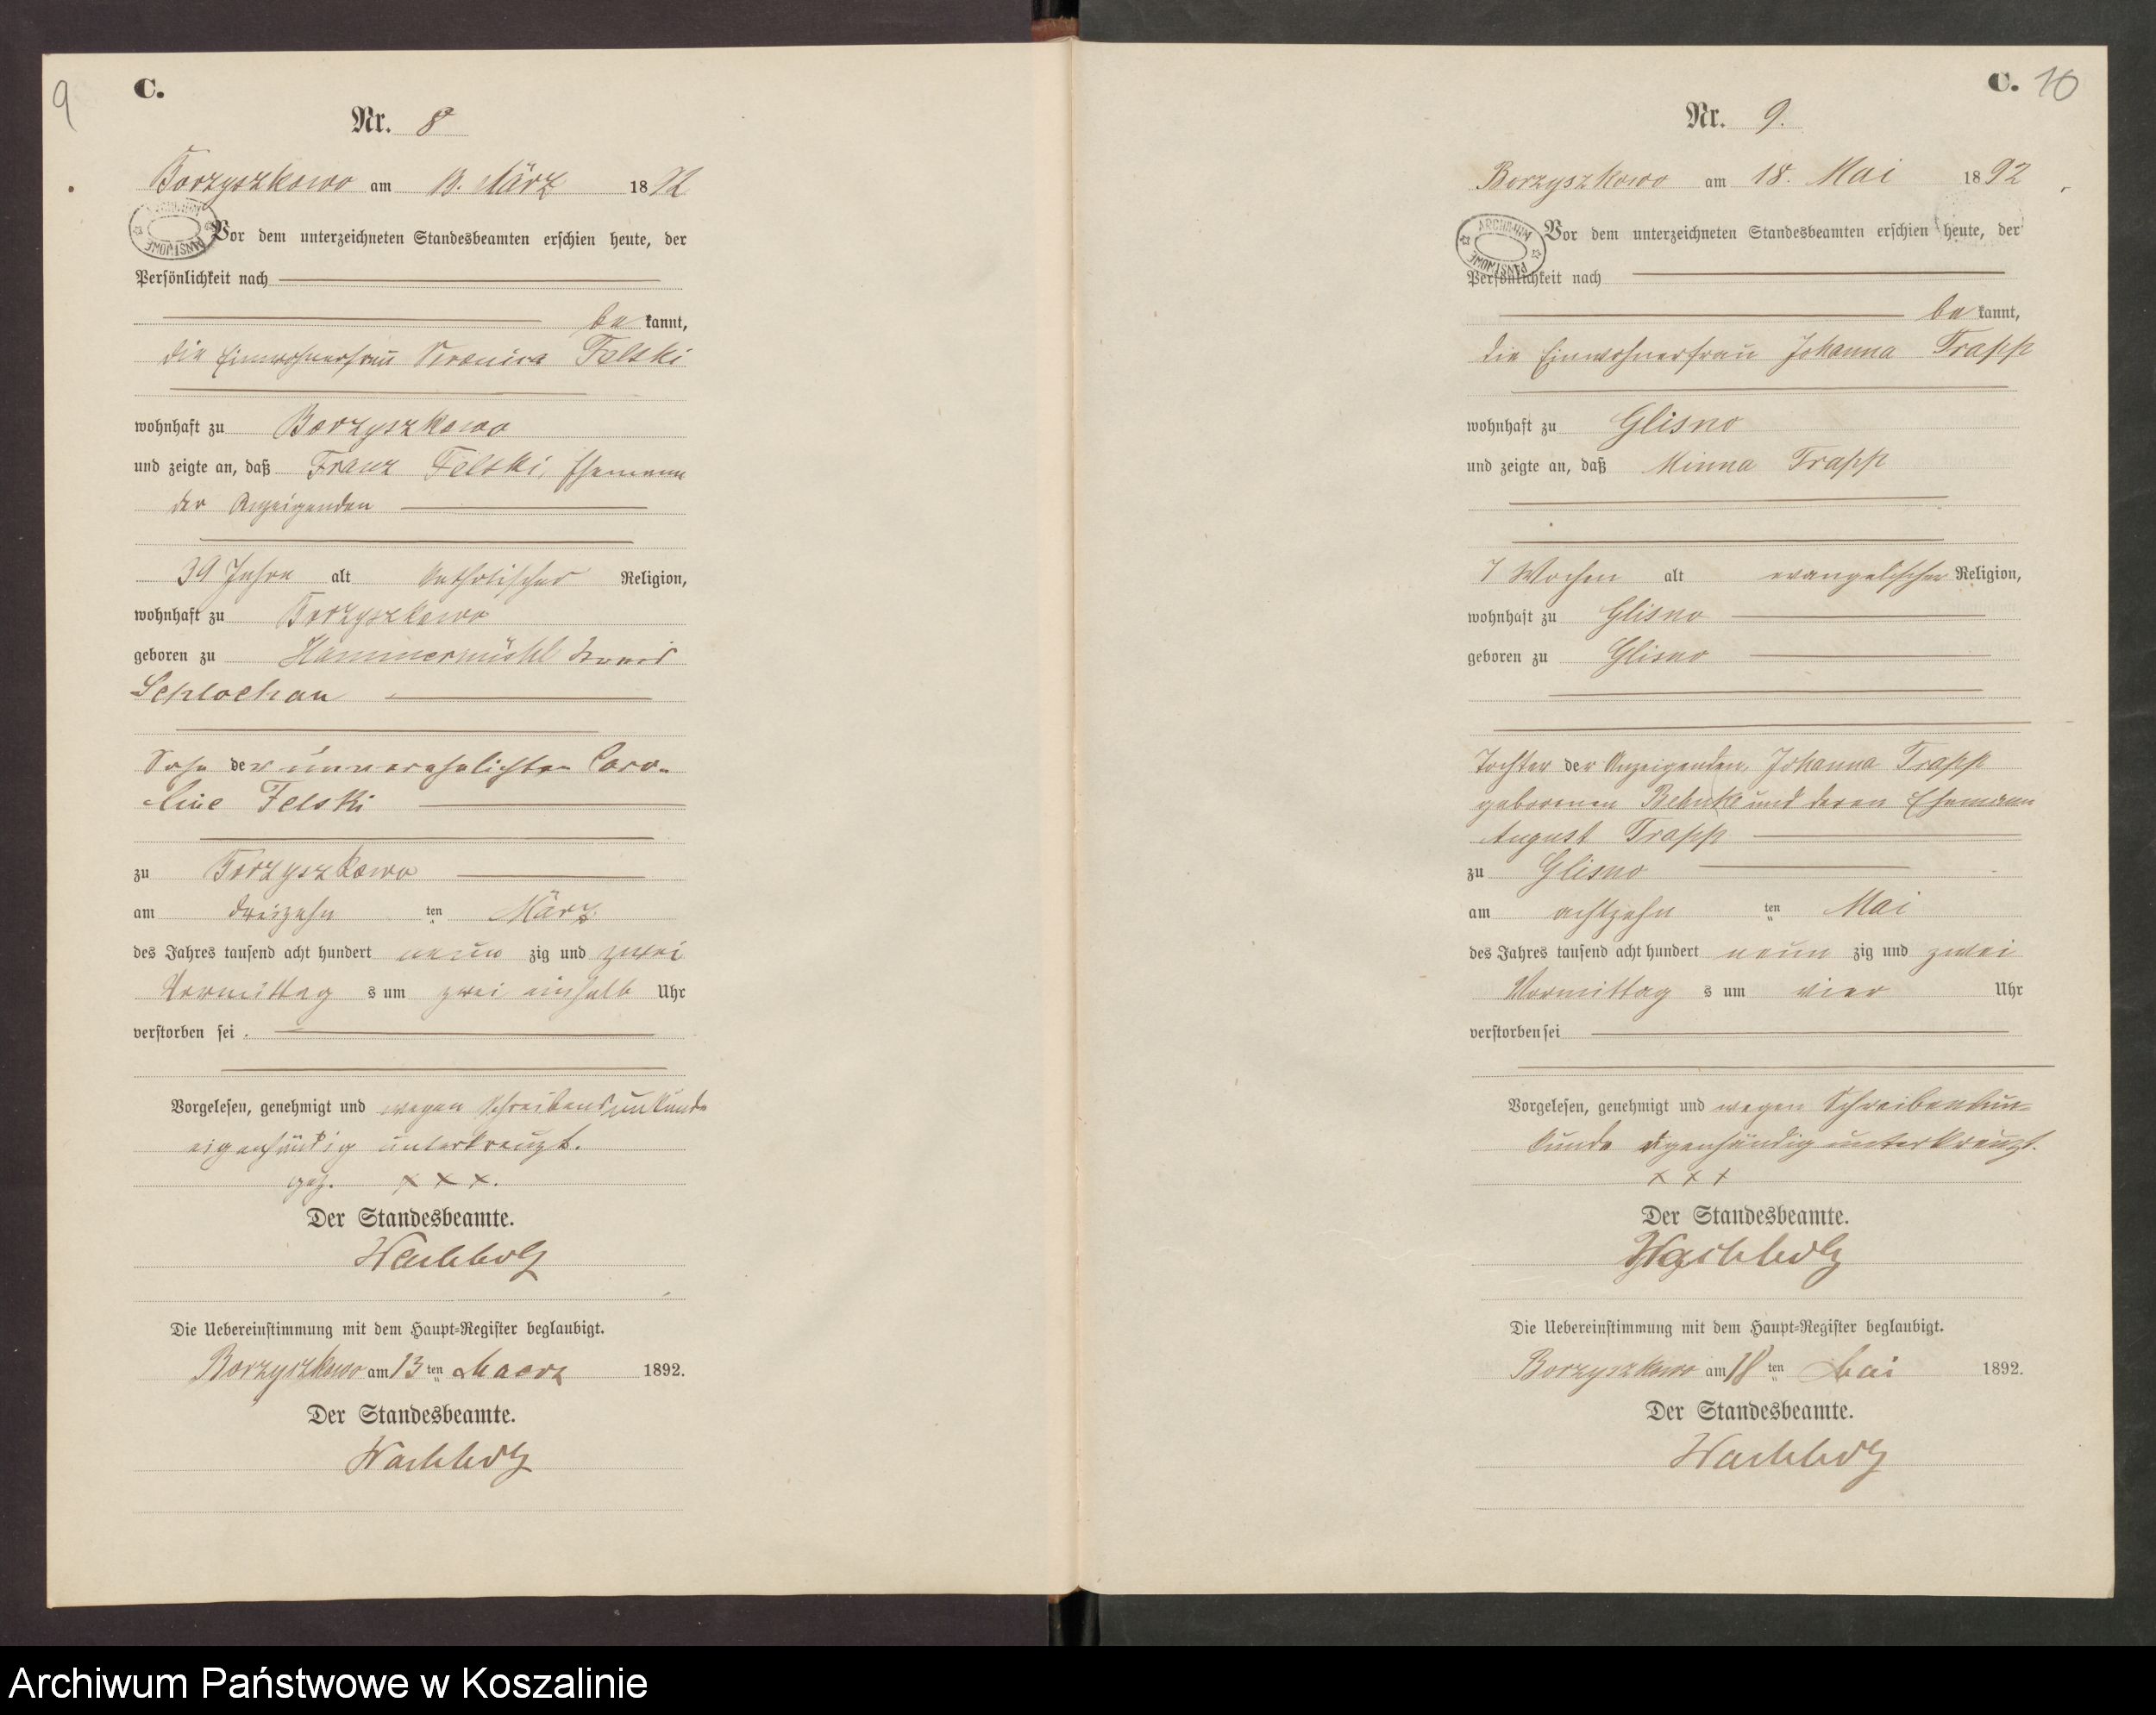 9
C.
Nr. 8
Borzyszkowo am 13. März 1892
ARCHIWUM
Vor dem unterzeichneten Standesbeamten erschien heute, der
Persönlichkeit nach
be kannt,
die Einwohnerfrau Veronica Felski
wohnhaft zu Borzyszkowo
und zeigte an, daß Franz Felski, Ehemann
der Anzeigenden
39 Jahre alt katholischer Religion,
wohnhaft zu Borzyszkowo
geboren zu Hammermühl Kreis
Schlochau
Sohn der unverehelichten Caro-
line Felski
zu Borzyszkowo
am dreizehn ten März
des Jahres tausend acht hundert neun zig und zwei
Vormittag s um zwei einhalb Uhr
verstorben sei.
Vorgelesen, genehmigt und wegen Schreibensunkunde
eigenhändig unterkreuzt.
gez. x x x.
Der Standesbeamte.
Wachholz
Die Uebereinstimmung mit dem Haupt-Register beglaubigt.
Borzyszkowo am 13 ten Maerz 1892.
Der Standesbeamte.
Wachholz
C. 10
Nr. 9.
Borzyszkowo am 18. Mai 1892
ARCHIWUM
Vor dem unterzeichneten Standesbeamten erschien heute, der
Persönlichkeit nach
be kannt,
die Einwohnerfrau Johanna Trapp
wohnhaft zu Glisno
und zeigte an, daß Minna Trapp
7 Wochen alt evangelischer Religion,
wohnhaft zu Glisno
geboren zu Glisno
Tochter der Anzeigenden, Johanna Trapp
geborenen Behnke und deren Ehemann
August Trapp
zu Glisno
am achtzehn ten Mai
des Jahres tausend acht hundert neun zig und zwei
Vormittag s um vier Uhr
verstorben sei
Vorgelesen, genehmigt und wegen Schreibensun-
kunde eigenhändig unterkreuzt.
x x x
Der Standesbeamte.
Wachholz
Die Uebereinstimmung mit dem Haupt-Register beglaubigt.
Borzyszkowo am 18 ten Mai 1892.
Der Standesbeamte.
Wachholz
Archiwum Państwowe w Koszalinie